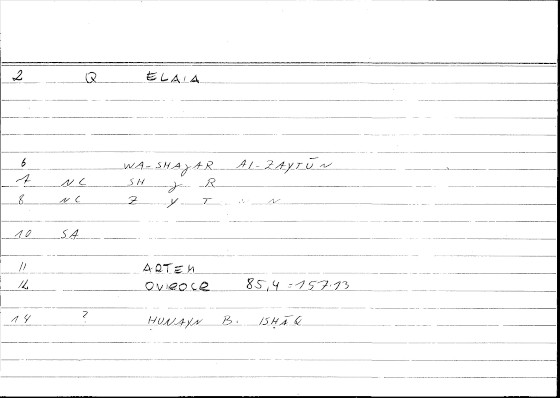 2 Q ELAIA
6 WA-SHAJAR AL-ZAYTŪN
7 NC SH J R
8 NC Z Y T N
10 SA
11 ARTEM
12 OVEOCR 85,4 = 157.13
14 ? ḤUNAYN B. ISḤĀQ